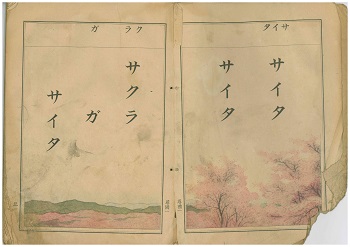 サイタ
サイタ
サイタ
サクラ
ガ
サイタ
クラ
ガ